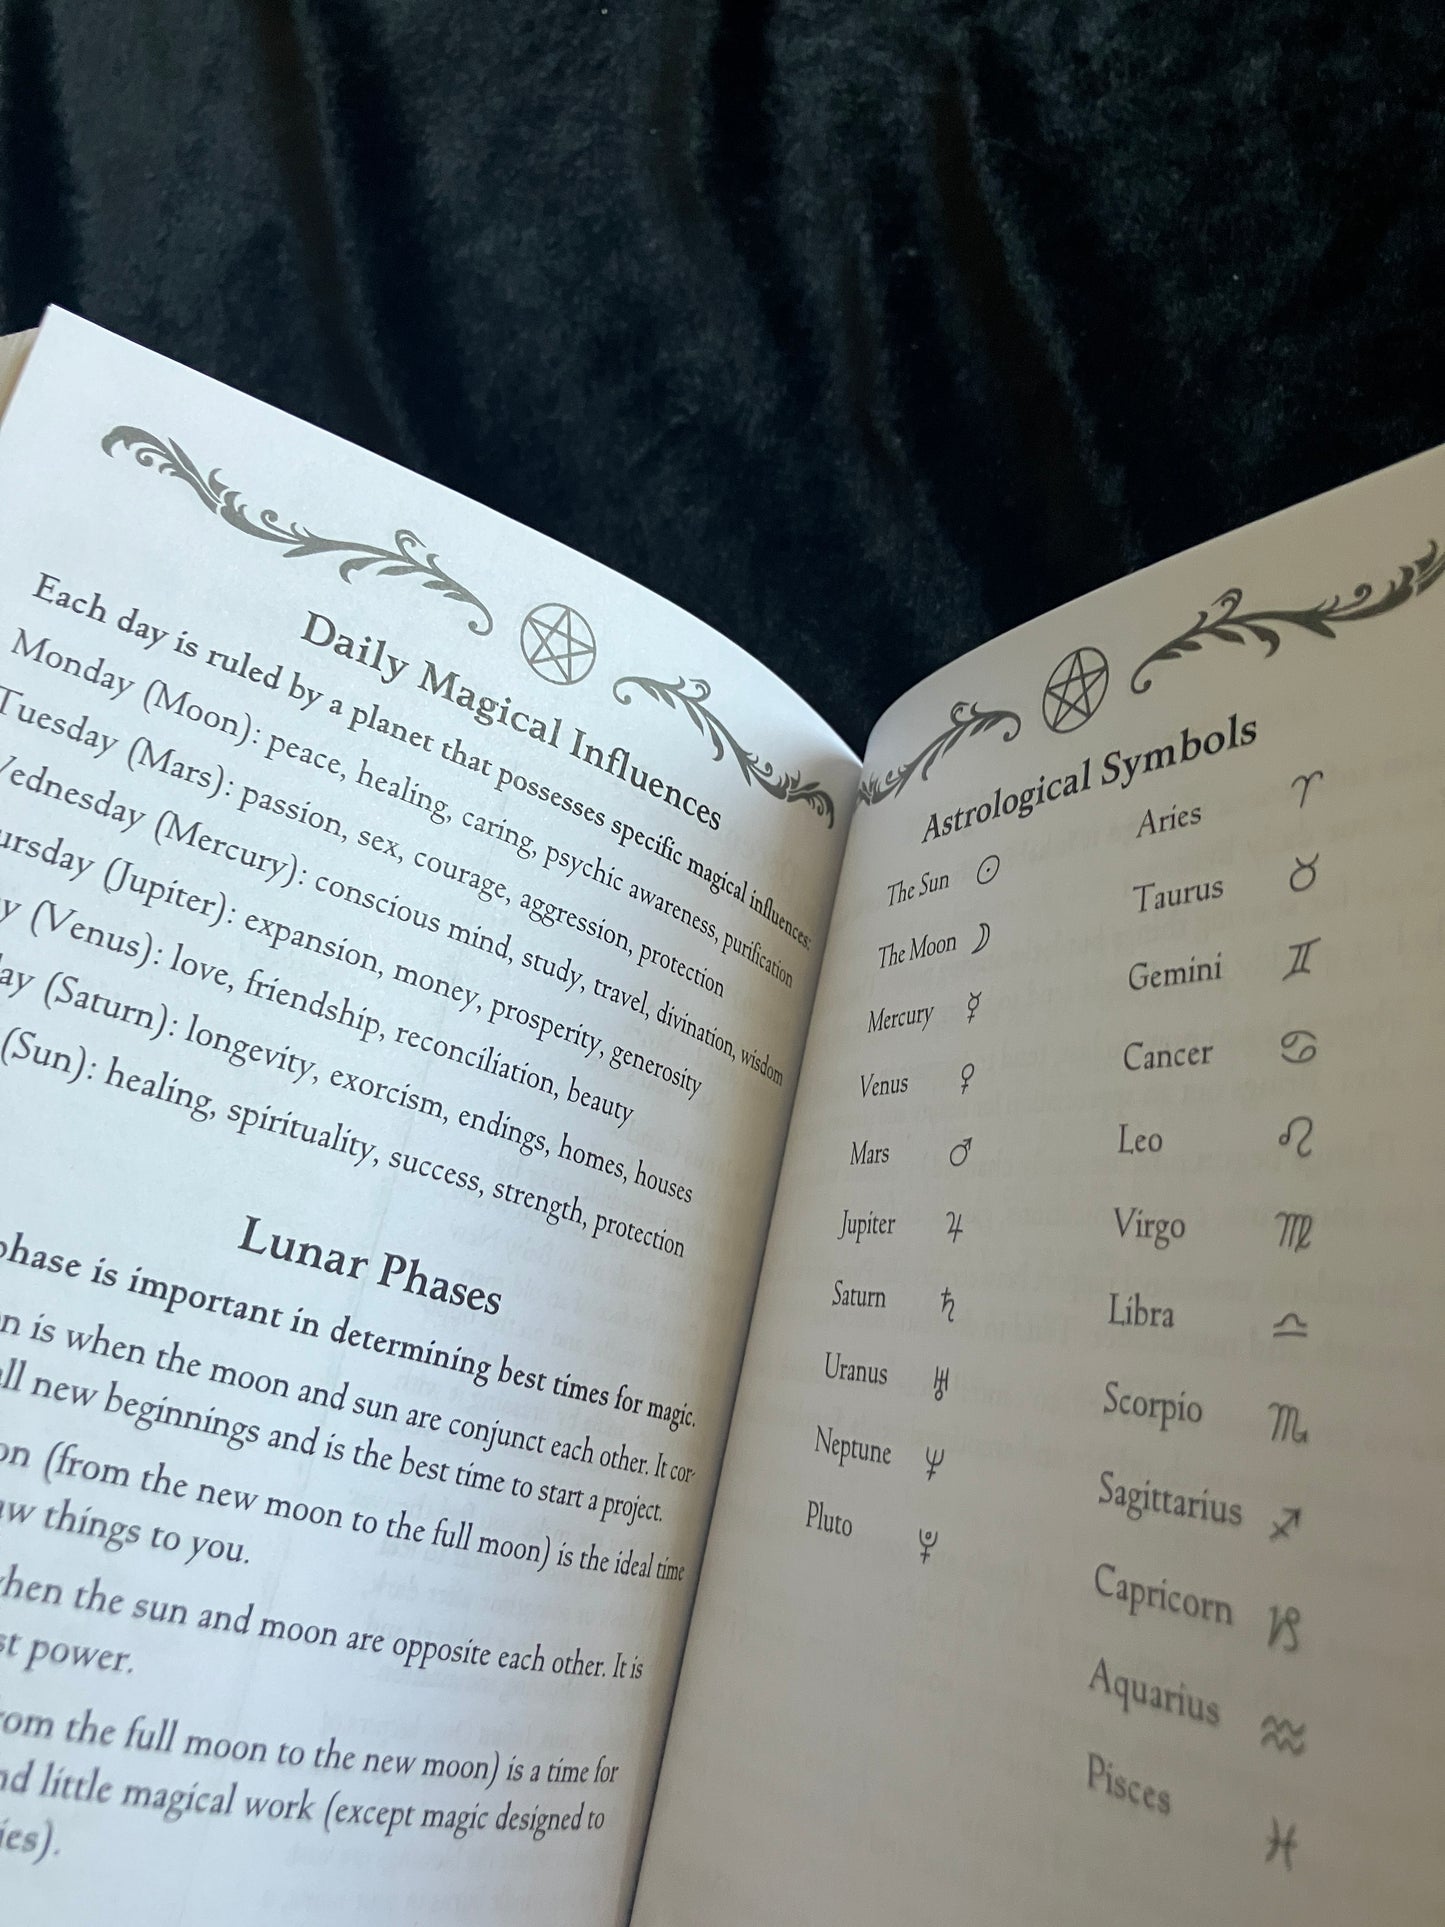 Daily Magical Influences
Each day is ruled by a planet that possesses specific magical influences:
Monday (Moon): peace, healing, caring, psychic awareness, purification
Tuesday (Mars): passion, sex, courage, aggression, protection
ednesday (Mercury): conscious mind, study, travel, divination, wisdom
ursday (Jupiter): expansion, money, prosperity, generosity
y (Venus): love, friendship, reconciliation, beauty
ay (Saturn): longevity, exorcism, endings, homes, houses
(Sun): healing, spirituality, success, strength, protection
Lunar Phases
phase is important in determining best times for magic.
n is when the moon and sun are conjunct each other. It cor-
all new beginnings and is the best time to start a project.
on (from the new moon to the full moon) is the ideal time
aw things to you.
when the sun and moon are opposite each other. It is
st power.
rom the full moon to the new moon) is a time for
nd little magical work (except magic designed to
ies).
Astrological Symbols
The Sun ☉
The Moon ☽
Mercury ☿
Venus ♀
Mars ♂
Jupiter ♃
Saturn ♄
Uranus ♅
Neptune ♆
Pluto ⯓
Aries ♈
Taurus ♉
Gemini ♊
Cancer ♋
Leo ♌
Virgo ♍
Libra ♎
Scorpio ♏
Sagittarius ♐
Capricorn ♑
Aquarius ♒
Pisces ♓